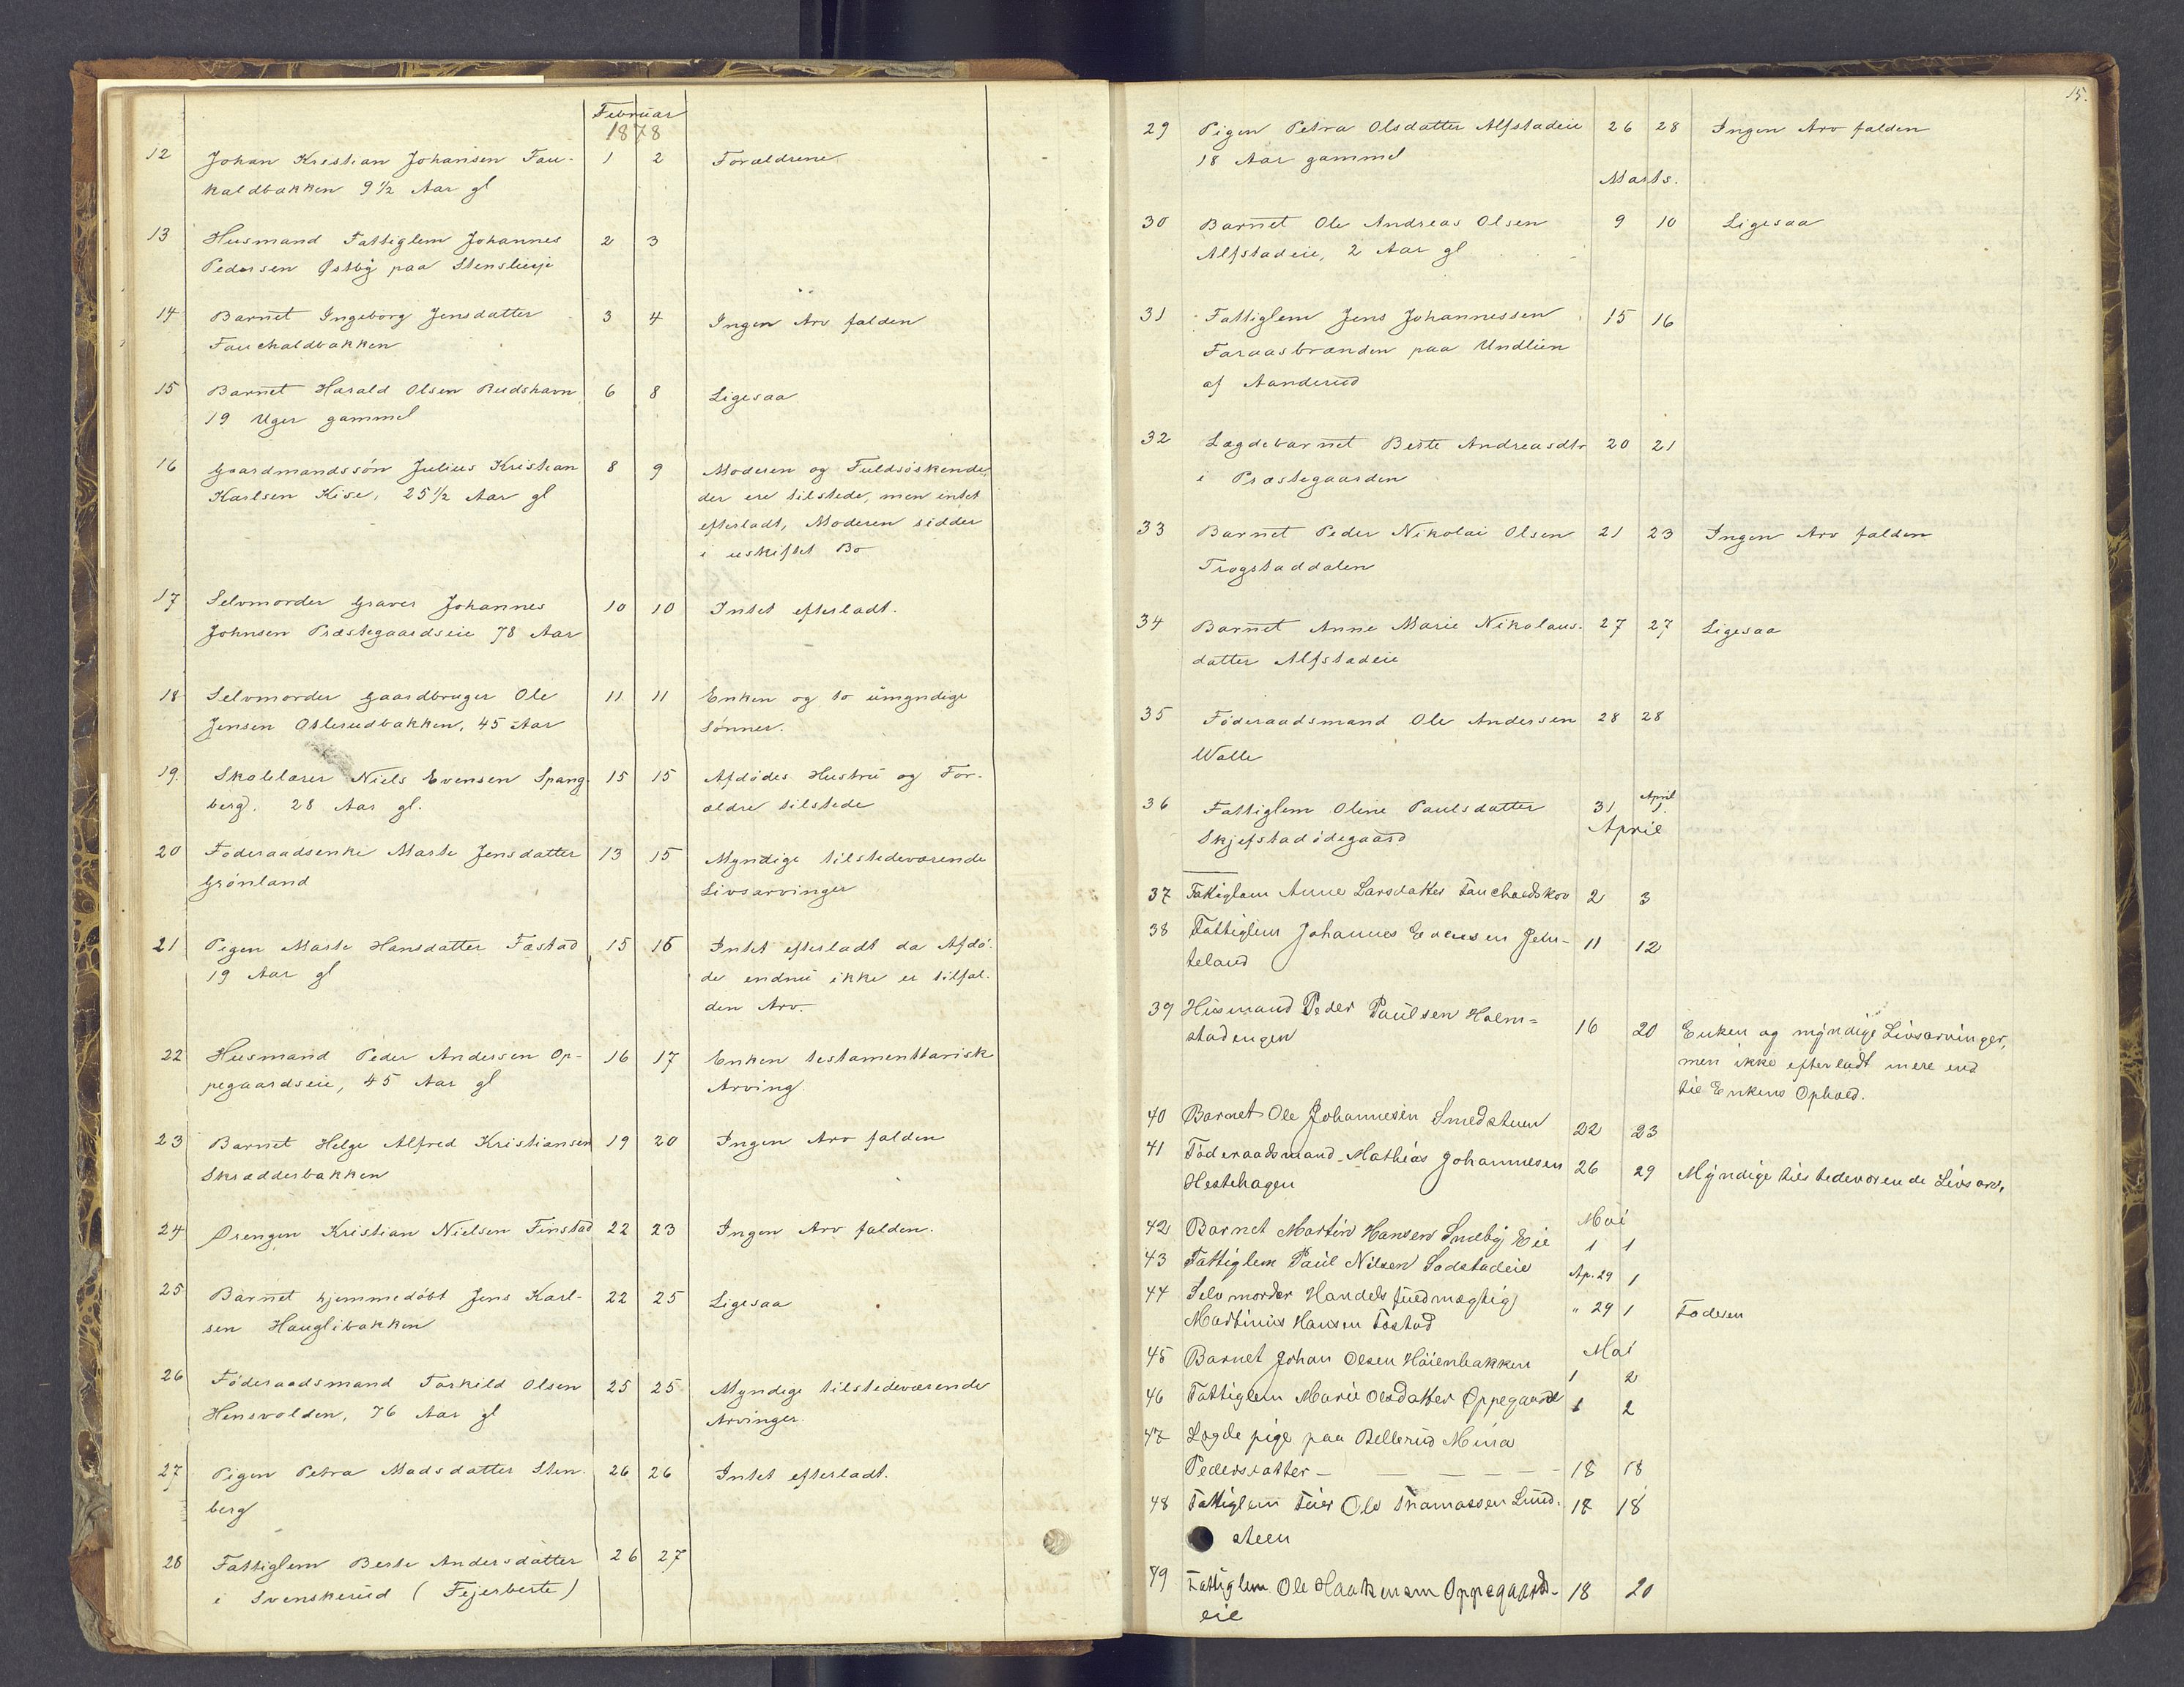 Februar
1878
12 Johan Kristian Johansen Fau- 1 2 Forældrene
kaldbakken 9½ Aar gl
13 Husmand Fattiglem Johannes 2 3
Pedersen Østby paa
14 Barnet Ingeborg Jensdatter 3 4 Ingen Arv falden
Fauchaldbakken
15 Barnet Harald Olsen Rudshavn 6 8 Ligesaa
19 Uger gammel
16 Gaardmandssøn Julius Kristian 8 9 Moderen og Fuldsøskende,
Karlsen Kise, 25½ Aar gl der ere tilstede, men intet
efterladt, Moderen sidder
i uskiftet Bo
17 Selvmorder Graver Johannes 10 10 Intet efterladt.
Johnsen Præstegaardseie 78 Aar
18 Selvmorder Gaardbruger Ole 11 11 Enken og to umyndige
Jensen Ollerudbakken, 45 Aar Sønner.
19. Skolelærer Niels Evensen Spang- 15 15 Afdødes Hustru og For-
berg. 28 Aar gl. ældre tilstede
20 Føderaadsenke Marte Jensdatter 13 15 Myndige tilstedeværende
Grønland Livsarvinger
21 Pigen Marte Hansdatter Fæstad 15 16 Intet efterladt da Afdø-
19 Aar gl de endnu ikke er tilfal-
den Arv.
22 Husmand Peder Andersen Op- 16 17 Enken testamentarisk
pegaardseie, 45 Aar gl Arving.
23 Barnet Helge Alfred Kristiansen 19 20 Ingen Arv falden
Skrædderbakken
24 Drengen Kristian Nielsen Finstad 22 23 Ingen Arv falden.
25 Barnet hjemmedøbt Jens Karl- 22 25 Ligesaa
sen Hauglibakken
26 Føderaadsmand Torkild Olsen 25 25 Myndige tilstedeværende
Hensvolden, 76 Aar gl Arvinger.
27 Pigen Petra Madsdatter Sten- 26 26 Intet efterladt.
berg
28 Fattiglem Berte Andersdatter 26 27
i Svenskerud (Fejerberte)
15.
29 Pigen Petra Olsdatter Alfstadeie 26 28 Ingen Arv falden
18 Aar gammel
Marts.
30 Barnet Ole Andreas Olsen 9 10 Ligesaa
Alfstadeie, 2 Aar gl
31 Fattiglem Jens Johannessen 15 16
Faraasbrænden paa Undlien
af Aanderud
32 Lægdebarnet Berte Andreasdtr 20 21
i Præstegaarden
33 Barnet Peder Nikolai Olsen 21 23 Ingen Arv falden
Trogstaddalen
34 Barnet Anne Marie Nikolaus- 27 27 Ligesaa
datter Alfstadeie
35 Føderaadsmand Ole Andersen 28 28
Walle
36 Fattiglem Oline Paulsdatter 31 April 1.
Skjefstadødegaard
April
37 Fattiglem Anne Larsdatter Fauchaldskov 2 3
38 Fattiglem Johannes Evensen Jem- 11 12
teland
39 Husmand Peder Paulsen Holm= 16 20 Enken og myndige Livsarvinger,
stadengen men ikke efterladt mere end
til Enkens Ophold.
40 Barnet Ole Johannesen Smedstuen 22 23
41 Føderaadsmand Mathias Johannesen 26 29 Myndige tilstedeværende Livsarv.
Hestehagen
Mai
42 Barnet Martin Hansen Sneby Eie 1 1
43 Fattiglem Paul Nilsen Sodstadeie Ap. 29 1
44 Selvmorder Handelsfuldmægtig " 29 1 Faderen
Martinius Hansen Fæstad
Mai
45 Barnet Johan Olsen Høienbakken 1 2
46 Fattiglem Marie Olsdatter Oppegaard 1 2
47 Lægdepige paa Bellerud Mina
Pedersdatter — — — — — 18 18
48 Fattiglem Ole Thomassen Lund- 17 18
steen
49 Fattiglem Ole Haakensen Oppegaard- 18 20
eie